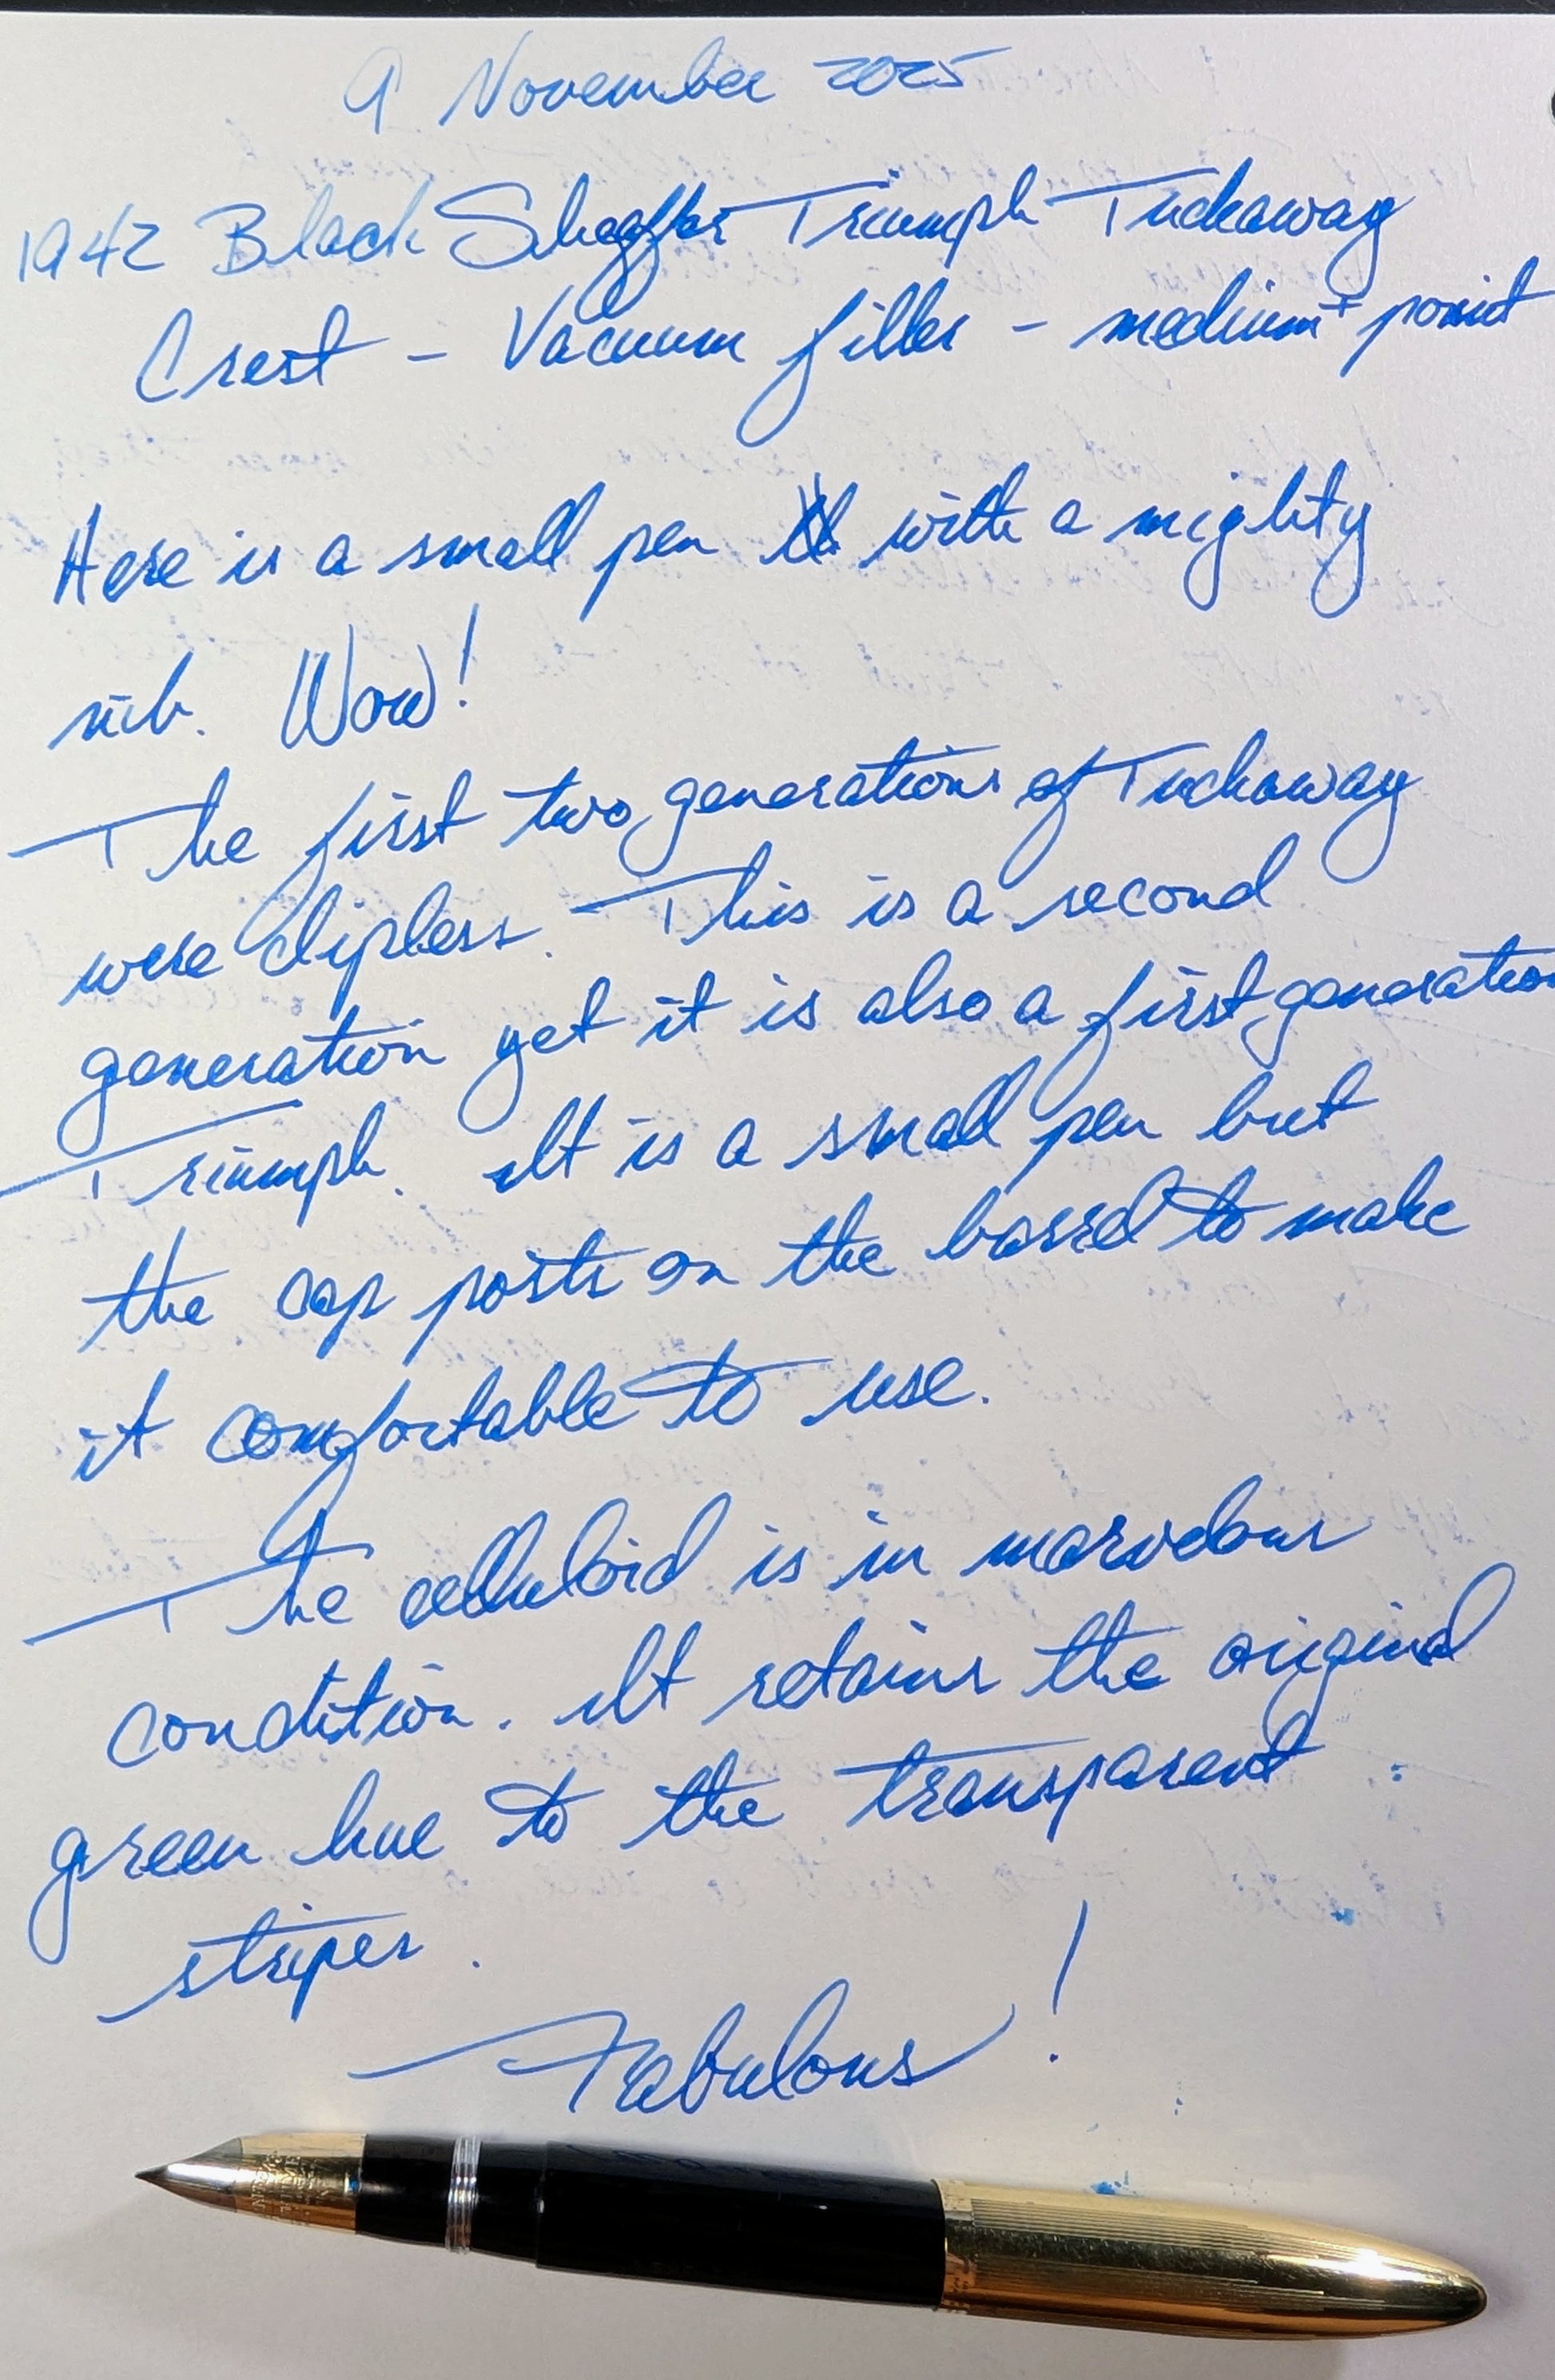 9 November 2025
1942 Black Sheaffer Triumph Tuckaway
Crest - Vacuum filler - medium+ point
Here is a small pen with a mighty
nib. Wow!
The first two generations of Tuckaway
were clipless. This is a second
generation yet it is also a first generation
Triumph. It is a small pen but
the cap posts on the barrel to make
it comfortable to use.
The celluloid is in marvelous
condition. It retains the original
green hue to the transparent
stripes.
Fabulous!